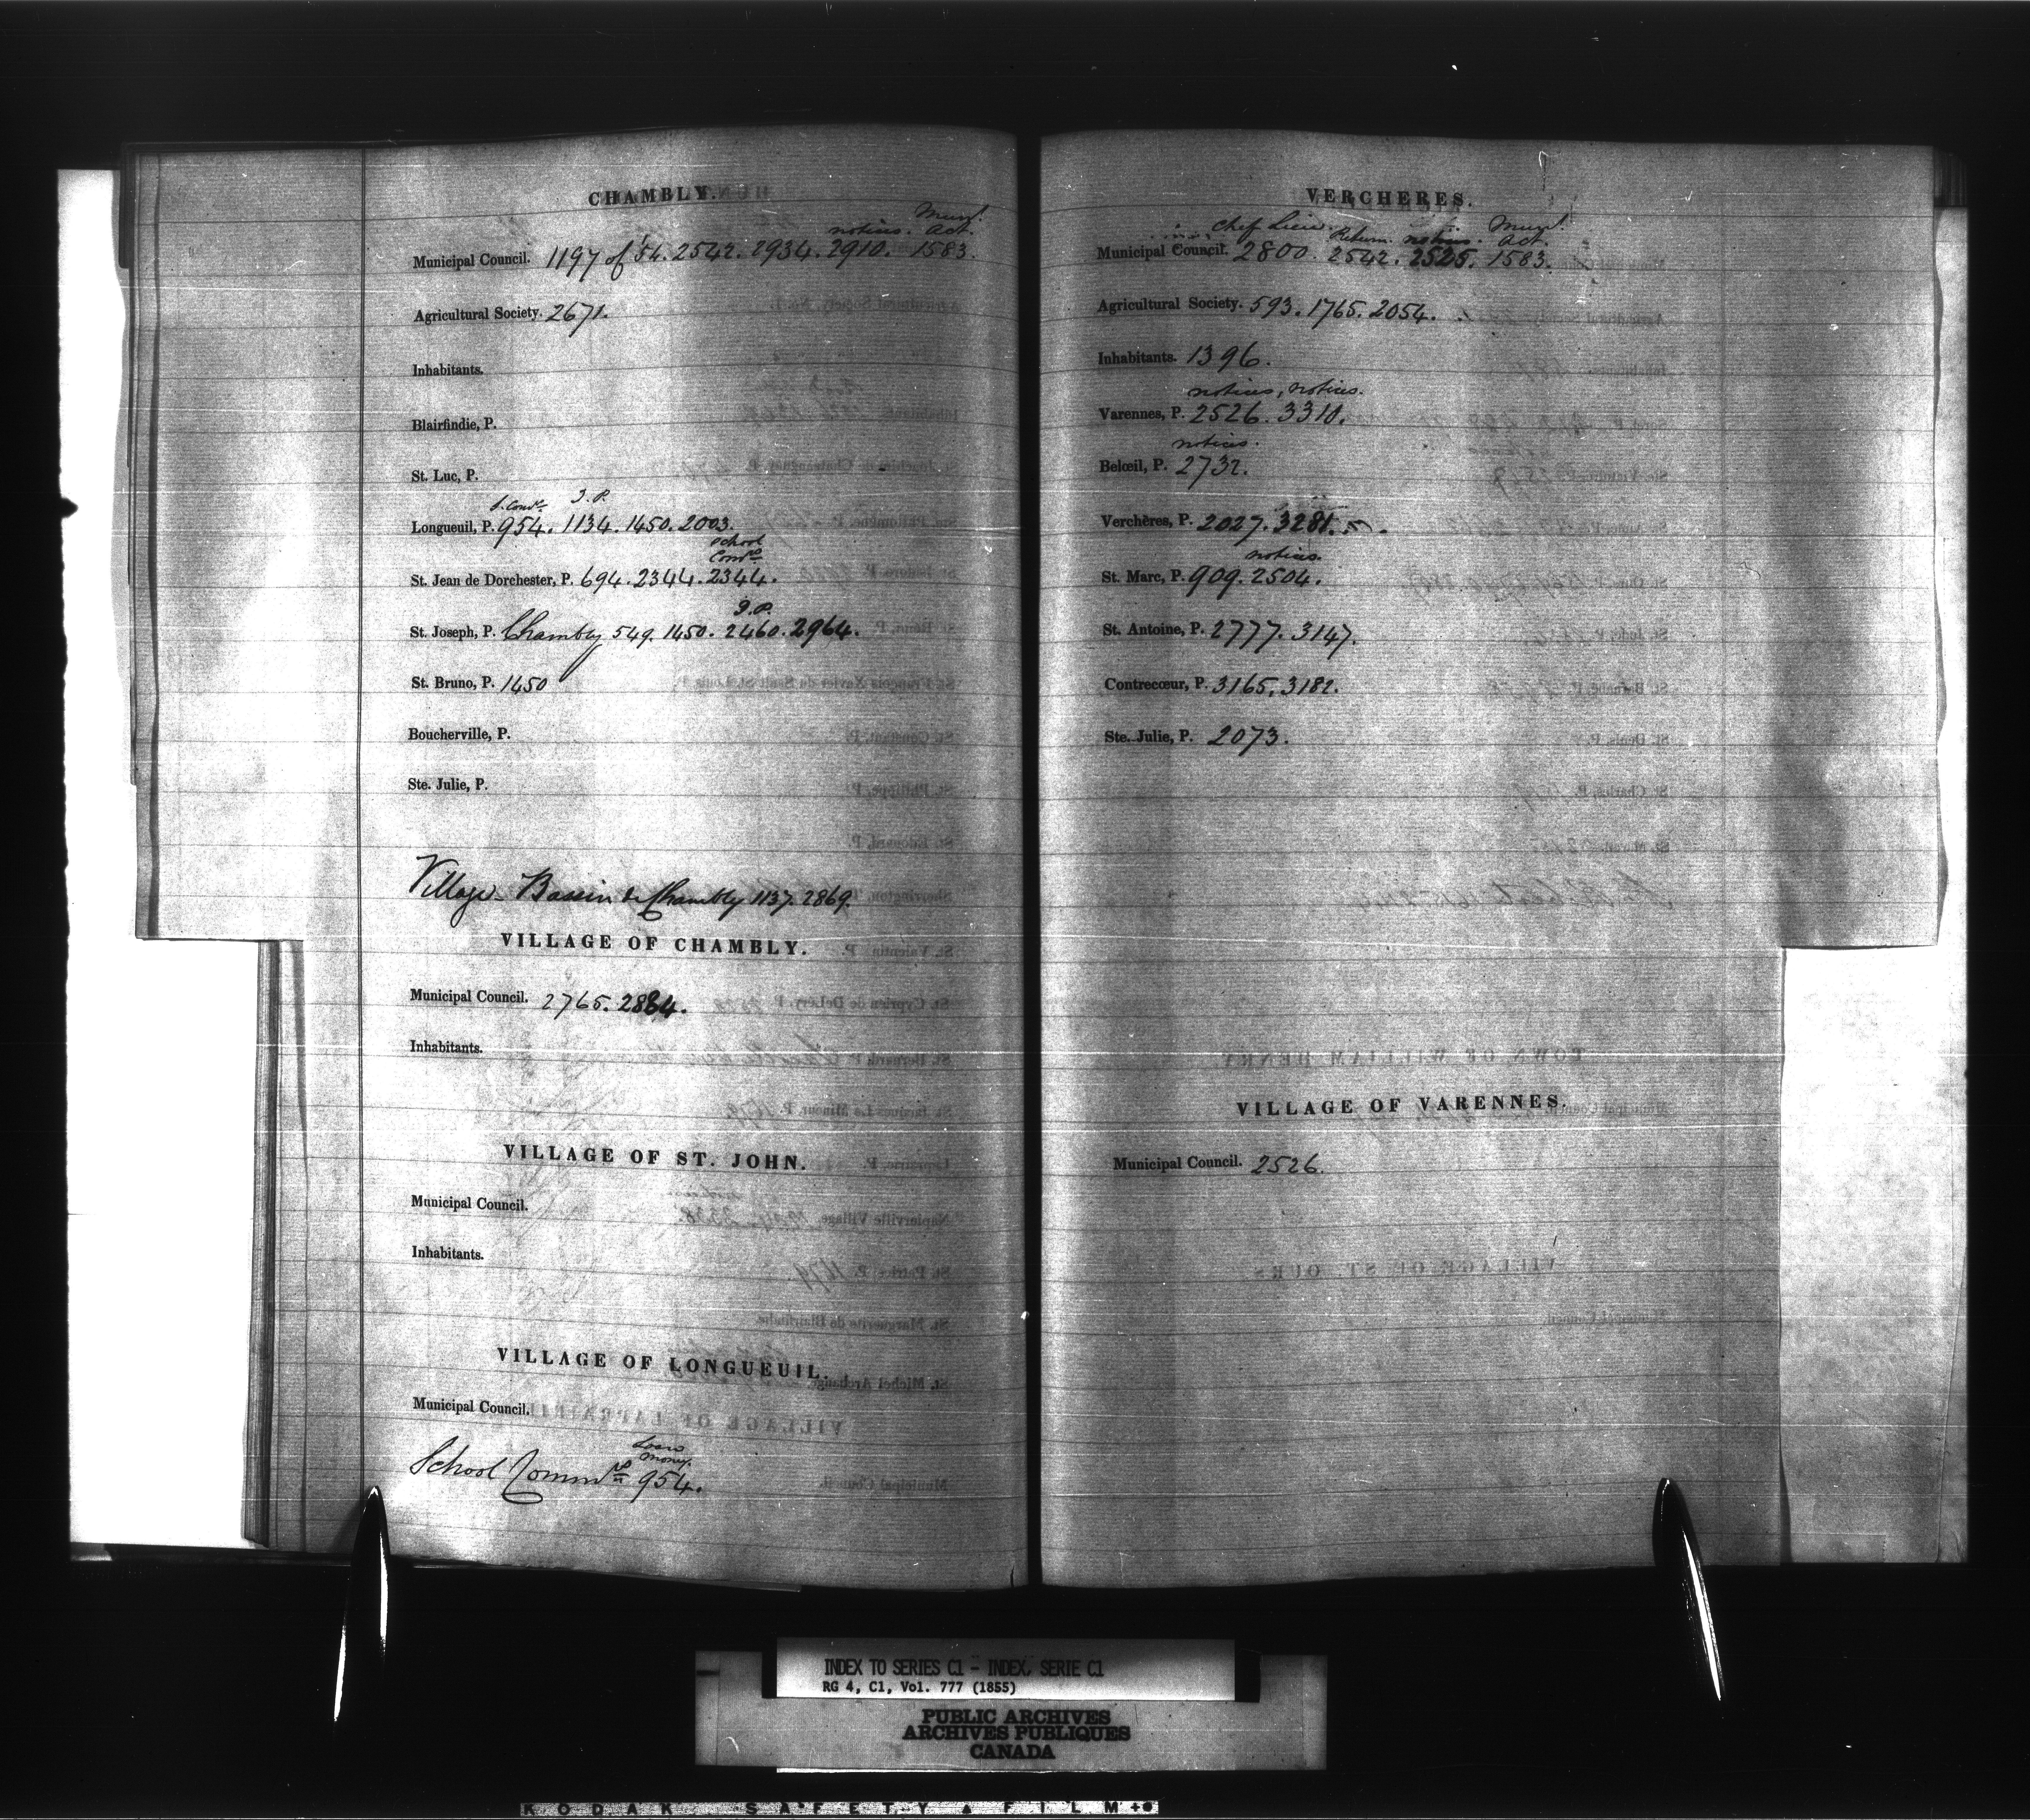 CHAMBLY.
notices. Munl. Act.
Municipal Council. 1197 of '54. 2542. 2934. 2910. 1583.
Agricultural Society. 2671.
Inhabitants.
Blairfindie, P.
St. Luc, P.
J. P.
Longueuil, P. 954. 1134. 1450. 2003.
School Comrs
St. Jean de Dorchester, P. 694. 2344. 2344.
J. P.
St. Joseph, P. Chambly 549. 1450. 2460. 2964.
St. Bruno, P. 1450
Boucherville, P.
Ste. Julie, P.
Village Bassin de Chambly 1137. 2869.
VILLAGE OF CHAMBLY.
Municipal Council. 2765. 2884.
Inhabitants.
VILLAGE OF ST. JOHN.
Municipal Council.
Inhabitants.
VILLAGE OF LONGUEUIL.
Municipal Council.
Loans money.
School Commrs 954.
VERCHERES.
Chef Lieu. Return. notices. Munl. Act.
Municipal Council. 2800. 2542. 2525. 1583.
Agricultural Society. 593. 1765. 2054.
Inhabitants. 1396.
notices, notices.
Varennes, P. 2526. 3310.
notices.
Belœil, P. 2732.
Verchères, P. 2027. 3281.
notices.
St. Marc, P. 909. 2504.
St. Antoine, P. 2777. 3147.
Contrecœur, P. 3165. 3182.
Ste. Julie, P. 2073.
VILLAGE OF VARENNES.
Municipal Council. 2526.
INDEX TO SERIES C1 - INDEX, SERIE C1
RG 4, C1, Vol. 777 (1855)
PUBLIC ARCHIVES
ARCHIVES PUBLIQUES
CANADA
KODAK SAFETY FILM